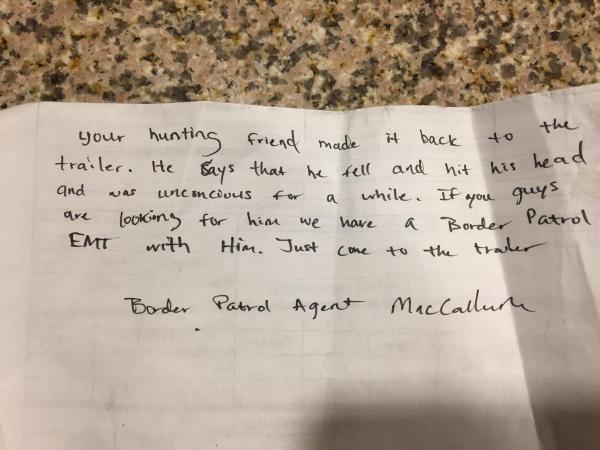 your hunting friend made it back to the
trailer. He says that he fell and hit his head
and was unconcious for a while. If you guys
are looking for him we have a Border Patrol
EMT with Him. Just come to the trailer
Border Patrol Agent MacCallum